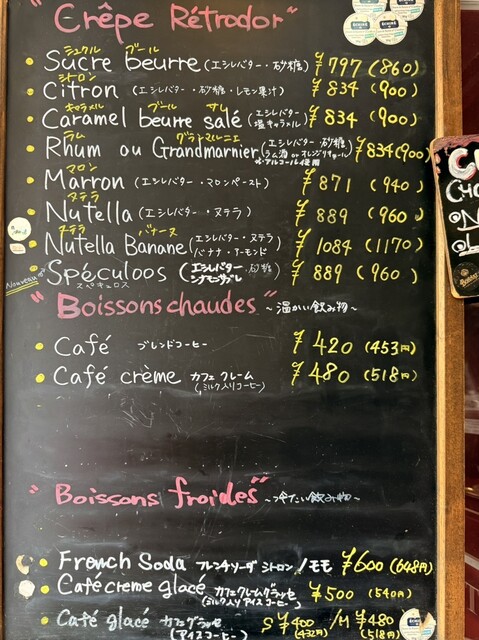 "Crêpe Rétrodor"
シュクル ブール
Sucre beurre (エシレバター・砂糖) ¥797 (860)
シトロン
Citron (エシレバター・砂糖・レモン果汁) ¥834 (900)
キャラメル ブール サレ
Caramel beurre salé (エシレバター 塩キャラメル) ¥834 (900)
ラム グランマルニエ
Rhum ou Grandmarnier (エシレバター・砂糖 ラム酒 or オレンジリキュール ※アルコール使用) ¥834 (900)
マロン
Marron (エシレバター・マロンペースト) ¥871 (940)
ヌテラ
Nutella (エシレバター・ヌテラ) ¥889 (960)
ヌテラ バナーヌ
Nutella Banane (エシレバター・ヌテラ バナナ・アーモンド) ¥1084 (1170)
Nouveau
Spéculoos (エシレバター・砂糖 シナモンサブレ) ¥889 (960)
スペキュロス
"Boissons chaudes" ~温かい飲み物~
Café ブレンドコーヒー ¥420 (453円)
Café crème カフェ クレーム (ミルク入りコーヒー) ¥480 (518円)
"Boissons froides" ~冷たい飲み物~
French Soda フレンチソーダ シトロン/モモ ¥600 (648円)
Café creme glacé カフェクレームグラッセ (ミルク入りアイスコーヒー) ¥500 (540円)
Café glacé カフェグラッセ (アイスコーヒー) S ¥400 (432円) / M ¥480 (518円)